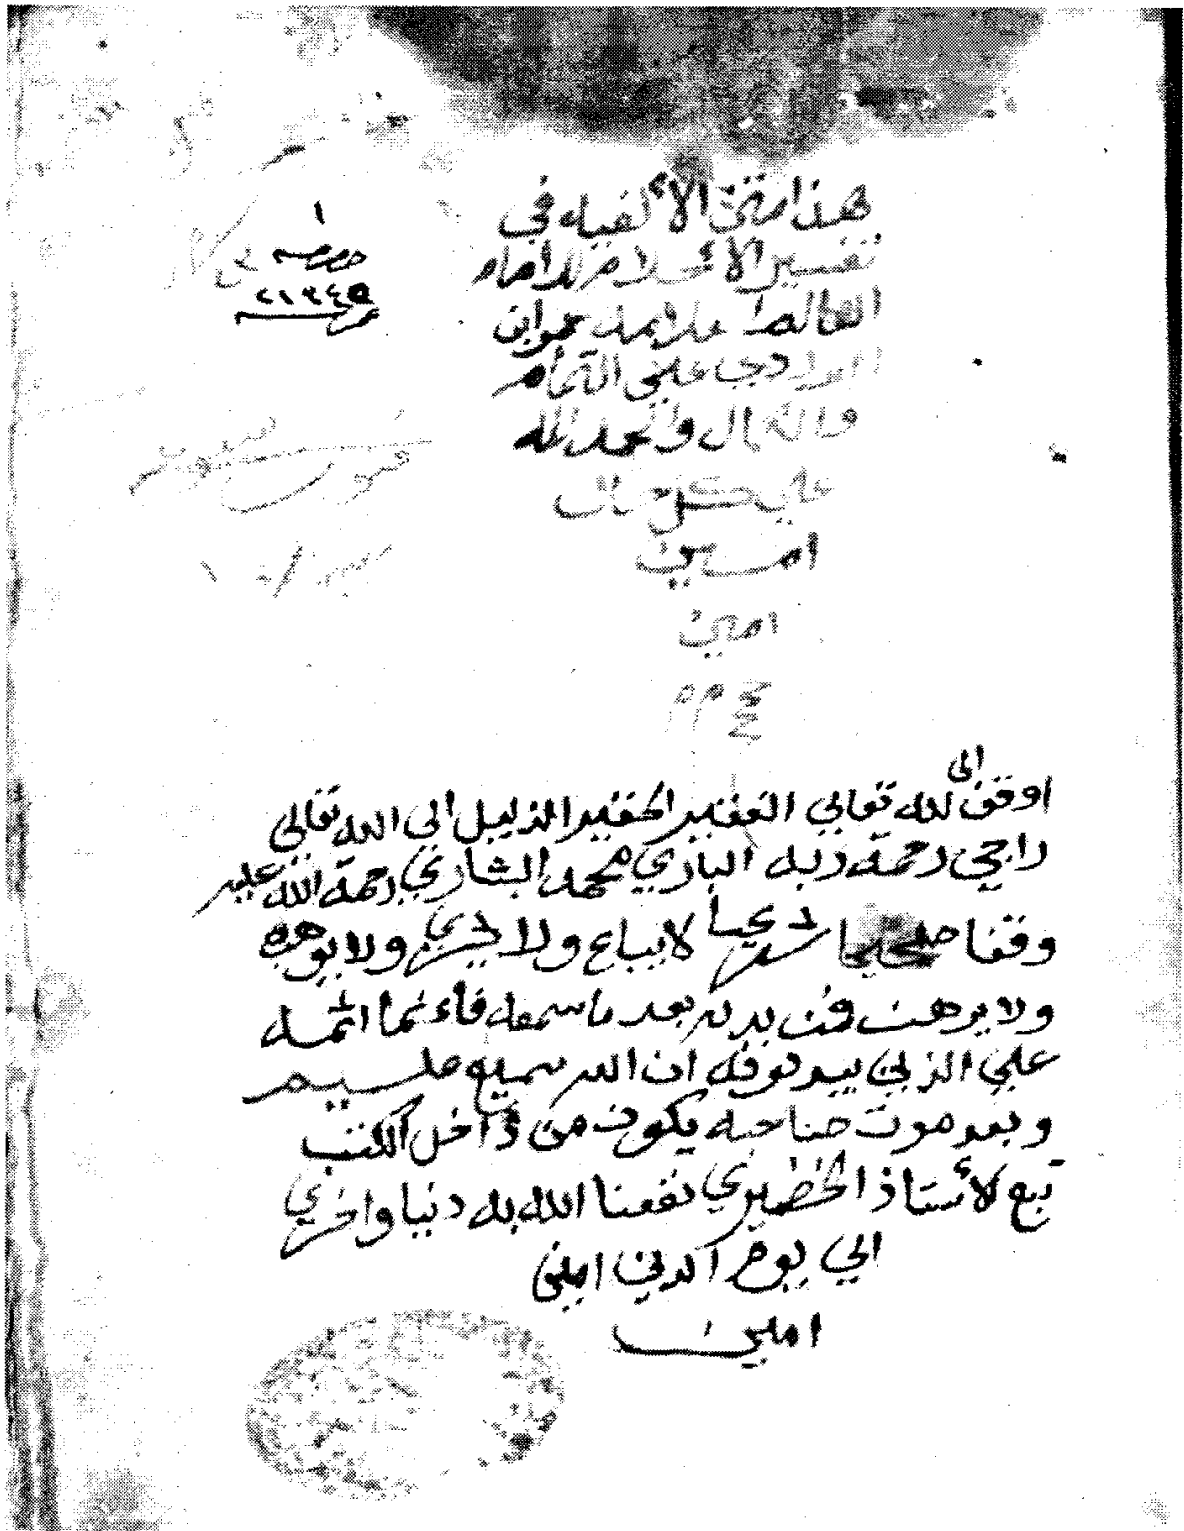 هذا متن الألفيه في
تفسير الأحلام للامام
العالم علامه عمر ابن
الوردي علي التمام
والكمال والحمد لله
علي كل حال
امين
امين
م م
اوقف الى لله تعالي الفقير الحقير الذليل الي الله تعالى
راجي رحمة ربه الباري محمد الشاري رحمة الله عليه
وقفا صحيحا شرعيا لا يباع ولا يشري ولا يوهب
ولا يرهن فمن بدله بعد ما سمعه فأنما اثمه
علي الذين يبدلونه ان الله سميع عليم
وبعد موت صاحبه يكون من داخل الكتب
تبع لأستاذ الخضيري نفعنا الله به دنيا واخري
الي يوم الدين امين
امين
١
٢١٣٤٥